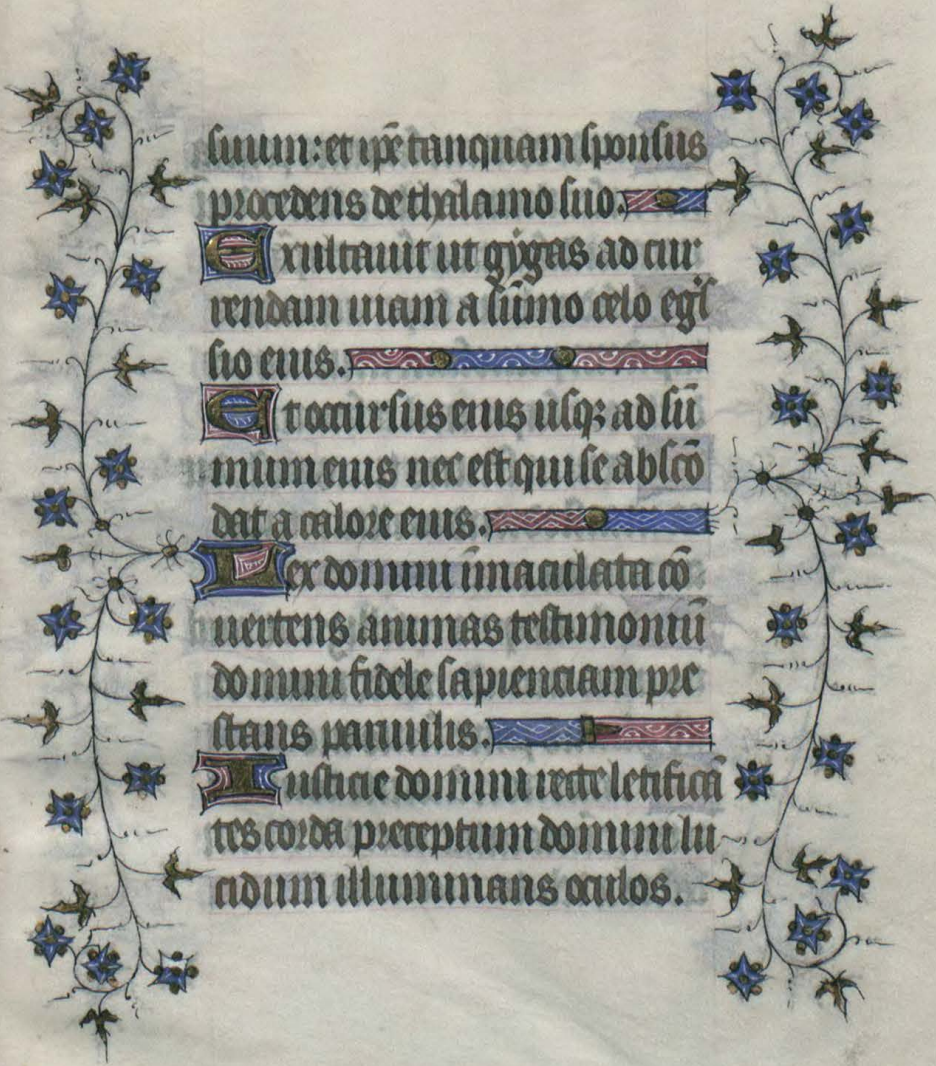 suum: et ip̄e tanquam sponsus
procedens de thalamo suo.
Exultauit ut gygas ad cur
rendam uiam a sūmo celo egſ
sio eius.
Et occursus eius usqꝫ ad sū
mum eius nec est qui se abscō
dat a calore eius.
Lex domini īmaculata cō
uertens animas testimoniū
domini fidele sapienciam pre
stans paruulis.
Iusticie domini recte letificā
tes corda preceptum domini lu
cidum illuminans oculos.